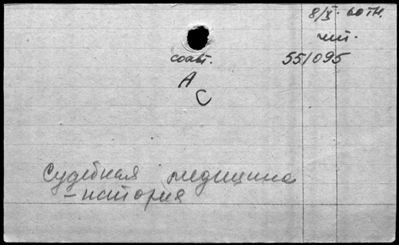 8/X. 60 тк.
чит.
соавт. 551095
А
С
Судебная медицина
– история